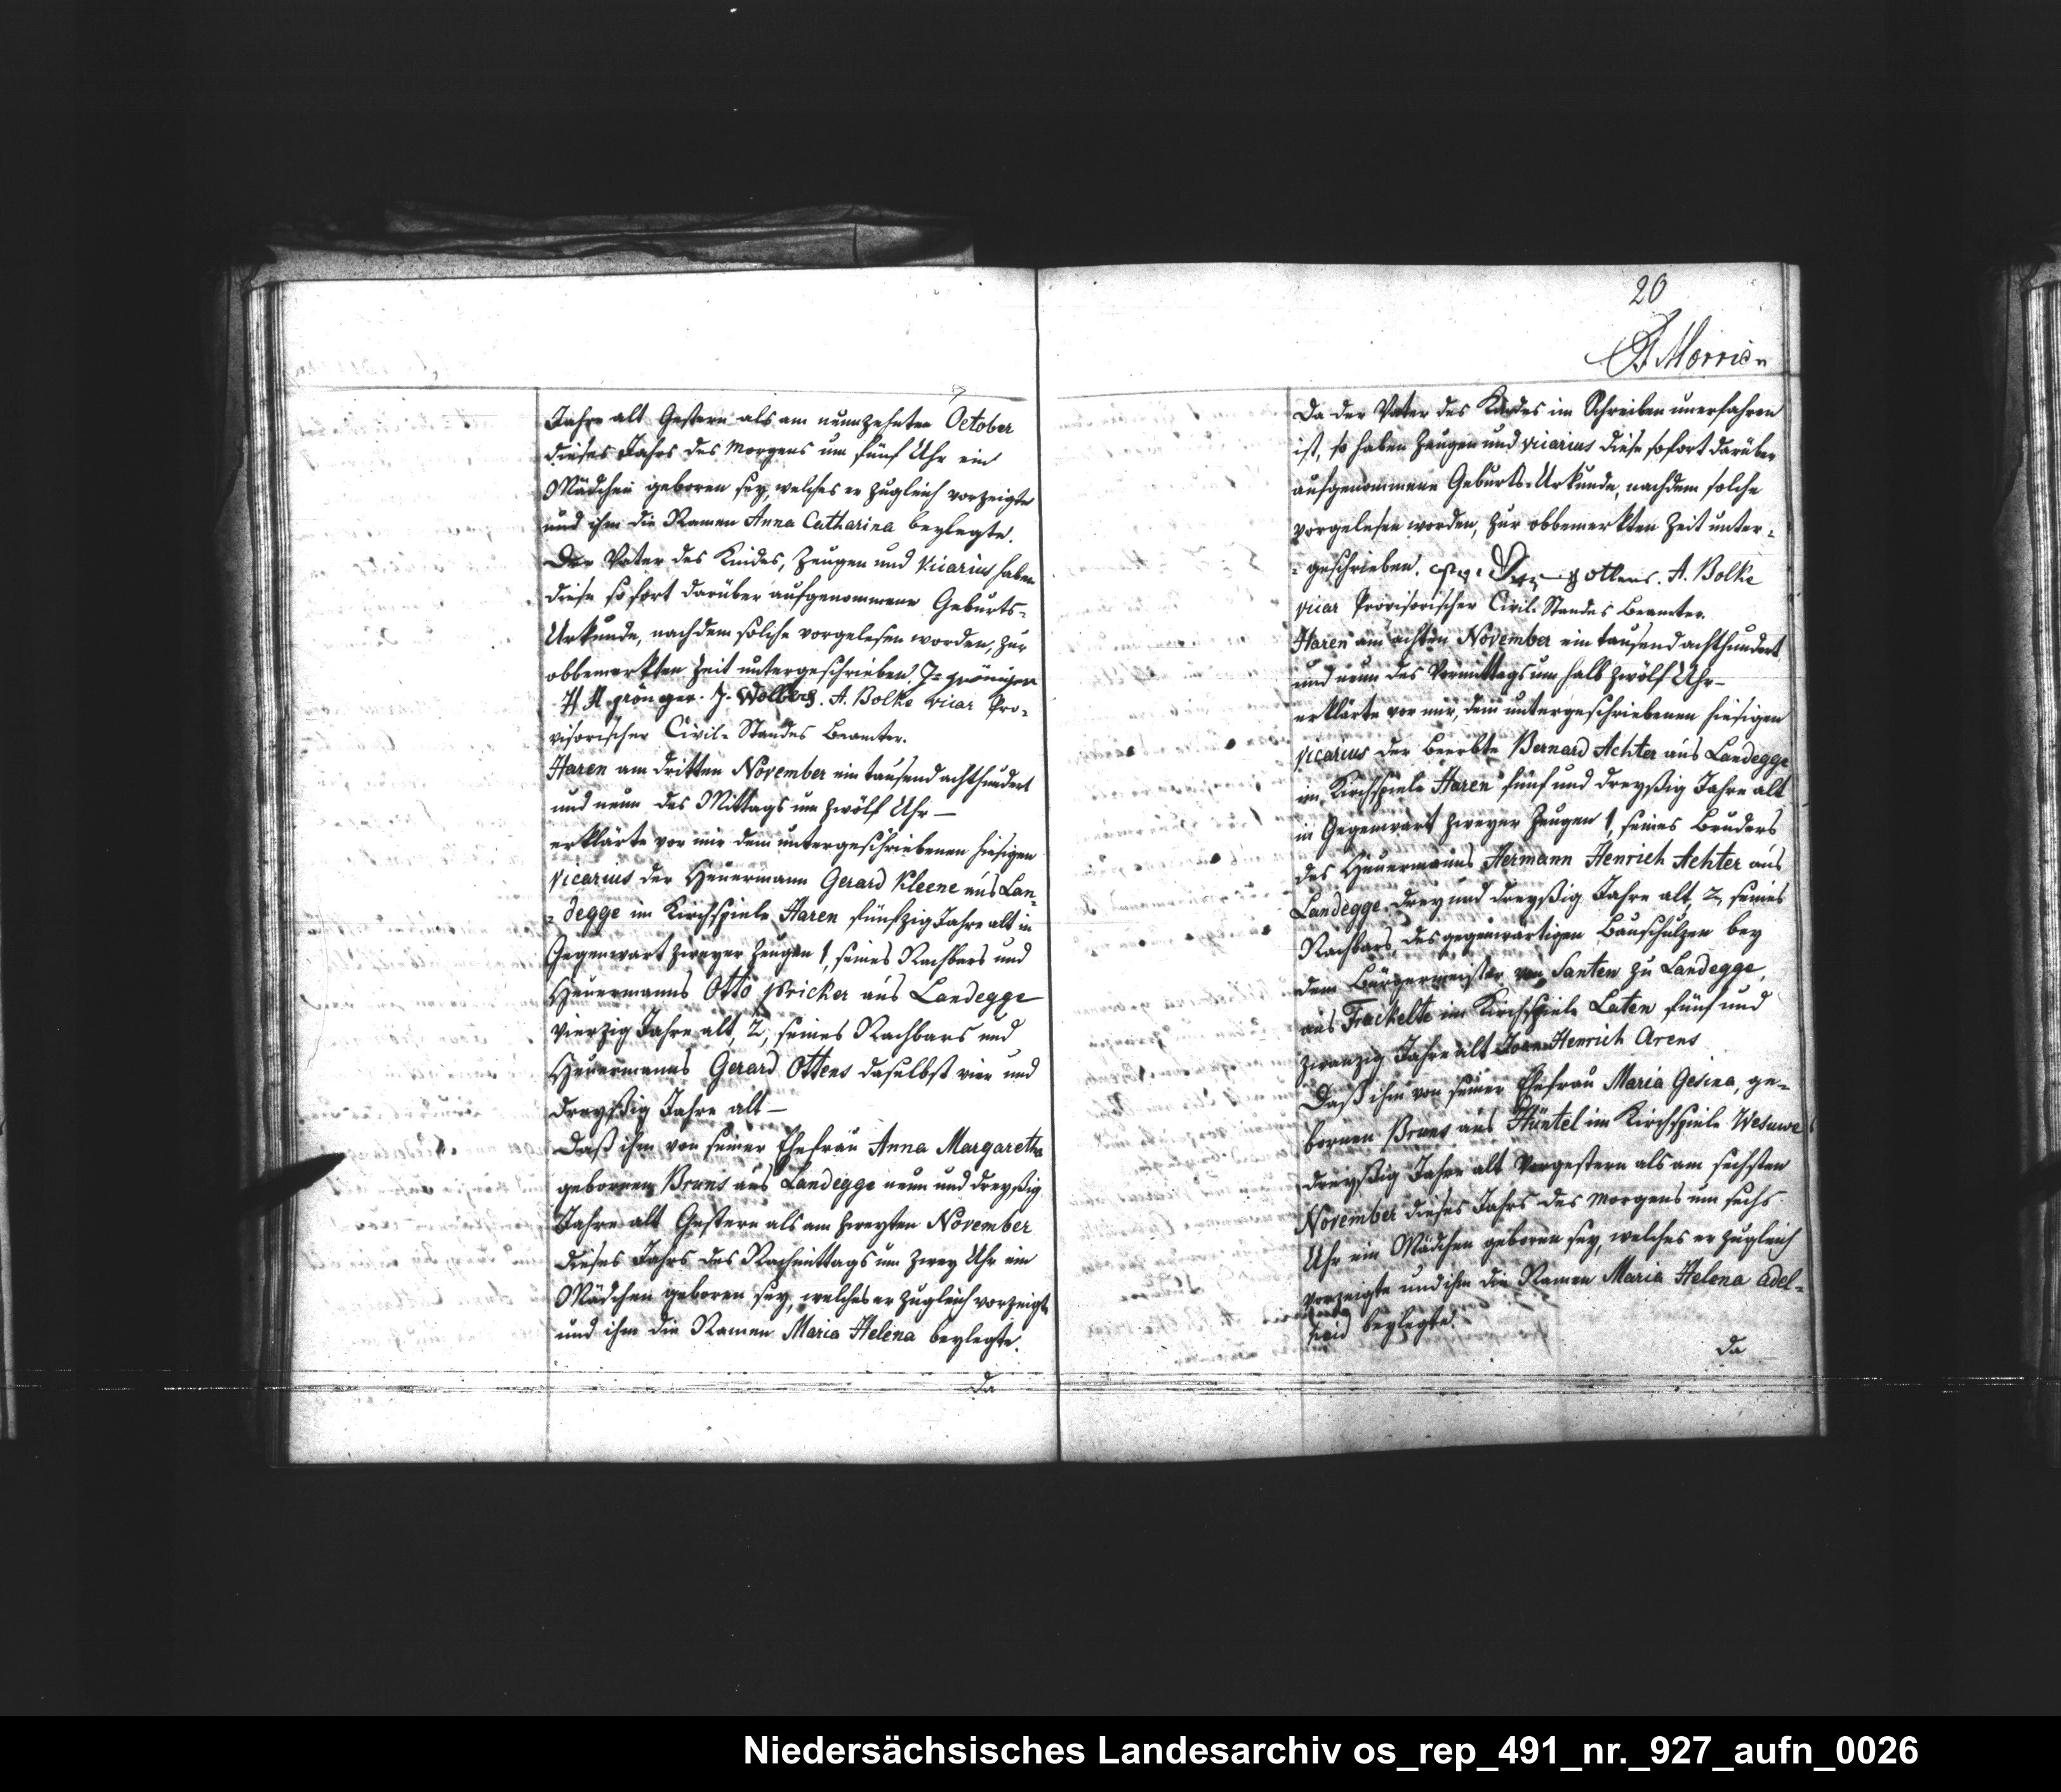 Jahre alt Gestern als am neunzehnten October
dieses Jahrs des Morgens um fünf Uhr ein
Mädchen geboren sey, welches er zugleich vorzeigte
und ihm die Namen Anna Catharina beylegte.
Der Vater des Kindes, Zeugen und Vicarius haben
diese sofort darüber aufgenommene Geburts-
Urkunde, nachdem solche vorgelesen worden, zur
obbemerkten Zeit untergeschrieben.
A. Bolke vicar Pro-
visorischer Civil-Standes Beamter.
Haren am dritten November ein tausend achthundert
und neun des Mittags um zwölf Uhr —
erklärte vor mir dem untergeschriebenen hiesigen
Vicarius der Heuermann Gerard Kleene aus Lan-
degge im Kirchspiele Haren fünfzig Jahre alt in
Gegenwart zweyer Zeugen 1, seines Nachbars und
Heuermanns Otto Pricker aus Landegge
vierzig Jahre alt, 2, seines Nachbars und
Heuermanns Gerard Ottens daselbst vier und
dreyßig Jahre alt —
Daß ihm von seiner Ehefrau Anna Margaretha
gebornen Bruns aus Landegge neun und dreyßig
Jahre alt Gestern als am zweyten November
dieses Jahrs des Nachmittags um zwey Uhr ein
Mädchen geboren sey, welches er zugleich vorzeigte
und ihm die Namen Maria Helena beylegte.
Da
20
Da der Vater des Kindes im Schreiben unerfahren
ist, so haben Zeugen und Vicarius diese sofort darüber
aufgenommene Geburts-Urkunde, nachdem solche
vorgelesen worden, zur obbemerkten Zeit unter-
geschrieben. A. Bolke
vicar Provisorischer Civil-Standes Beamter.
Haren am achten November ein tausend achthundert
und neun des Vormittags um halb zwölf Uhr —
erklärte vor mir, dem untergeschriebenen hiesigen
Vicarius der Beerbte Bernard Achter aus Landegge
im Kirchspiele Haren fünf und dreyßig Jahre alt
in Gegenwart zweyer Zeugen 1, seines Bruders
des Heuermanns Hermann Henrich Achter aus
Landegge drey und dreyßig Jahre alt, 2, seines
Nachbars, des gegenwärtigen Bauschulzen bey
dem Bürgermeister von Santen zu Landegge,
aus Frackelte im Kirchspiele Laten fünf und
zwanzig Jahre alt Joan Henrich Arens
Daß ihm von seiner Ehefrau Maria Gesina, ge-
bornen Bruns aus Hüntel im Kirchspiele Wesuwe
dreyßig Jahre alt Vorgestern als am sechsten
November dieses Jahrs des Morgens um sechs
Uhr ein Mädchen geboren sey, welches er zugleich
vorzeigte und ihm die Namen Maria Helena Adel-
heid beylegte.
Da
Niedersächsisches Landesarchiv os_rep_491_nr._927_aufn_0026